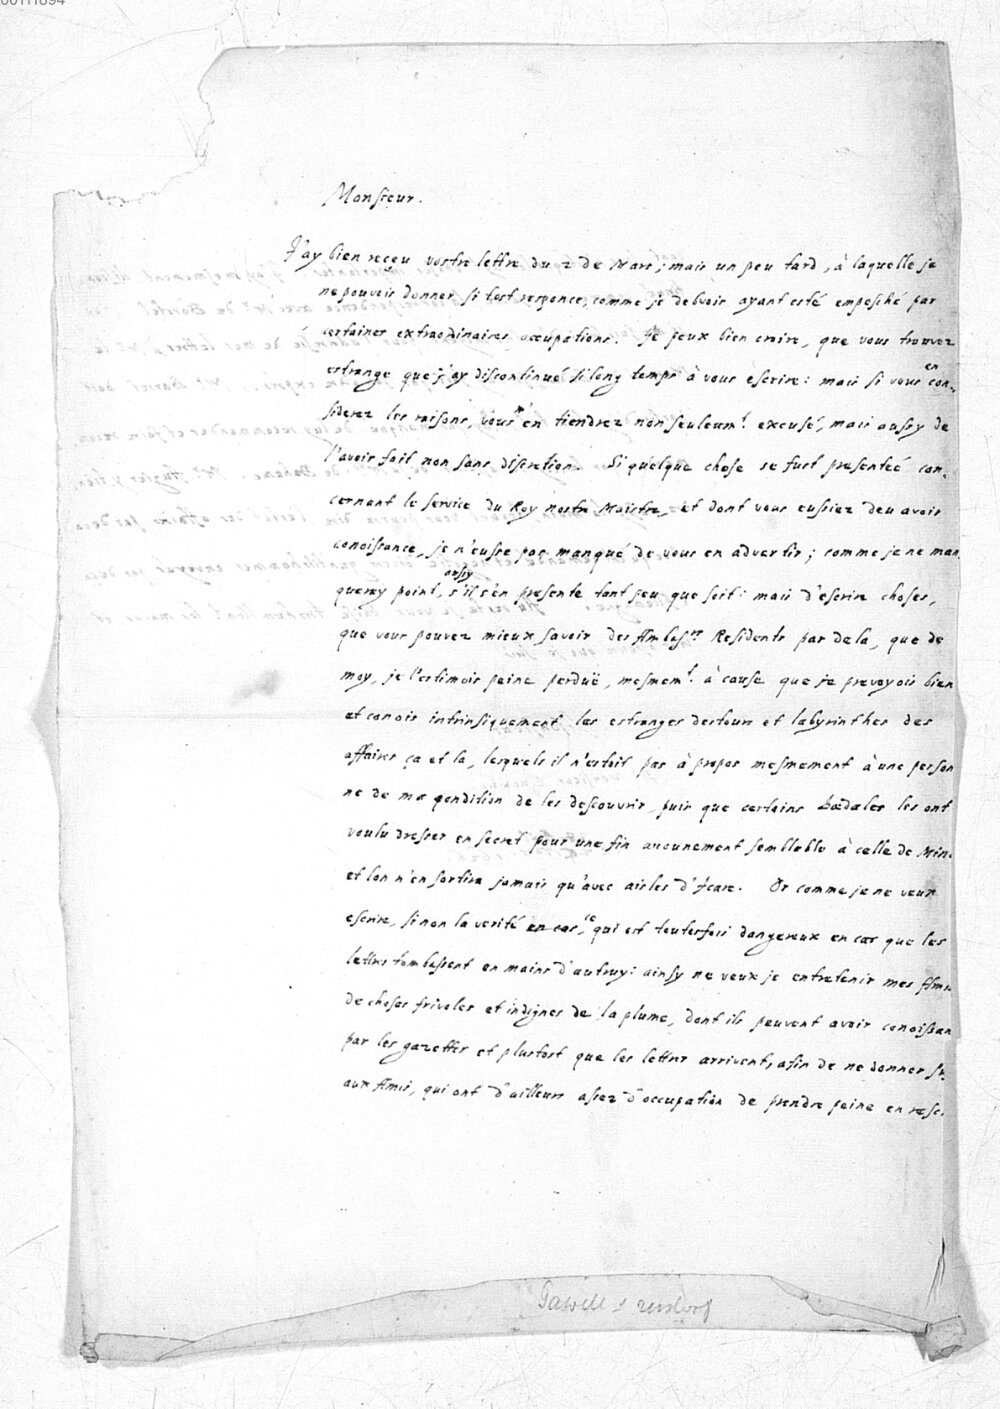 00111894
Monsieur.
J'ay bien reçeu vostre lettre du 2 de Mars; mais un peu tard, à laquelle je
ne pouvois donner si tost responce, comme je debvois ayant esté empesché par
certaines extraordinaires occupations. Je peux bien croire, que vous trouvez
estrange que j'ay discontinué si long temps à vous escrire: mais si vous en con-
siderez les raisons, vous m'en tiendrez non seulemt. excusé, mais aussy de
l'avoir fait non sans discretion. Si quelque chose se fust presenteé con-
cernant le service du Roy nostre Maistre, et dont vous eussiez deu avoir
conoissance, je n'eusse pas manqué de vous en advertir; comme je ne man
queray point, aussy s'il s'en presente tant peu que soit: mais d'escrire choses,
que vous pouvez mieux savoir des Ambasrs. Residents par dela, que de
moy, je l'estimois peine perduë, mesmemt. à cause que je prevoyois bien
et conois intrinsiquement les estranges destours et labyrinthes des
affaires ça et la, lesquels il n'estoit pas à propos mesmement à une person
ne de ma condition de les descouvrir, puis que certains Dædales les ont
voulu dresser en secret pour une fin aucunement semblable à celle de Min.
et lon n'en sortira jamais qu'avec aisles d'Icare. Or comme je ne veux
escrire, sinon la verité en cas, ce qui est toutesfois dangereux en cas que les
lettres tombassent en mains d'autruy: ainsy ne veux je entretenir mes Amis
de choses frivoles et indignes de la plume, dont ils peuvent avoir conoissan
par les gazettes et plustost que les lettres arrivent, afin de ne donner
aux Amis, qui ont d'ailleurs assez d'occupation de prendre peine en